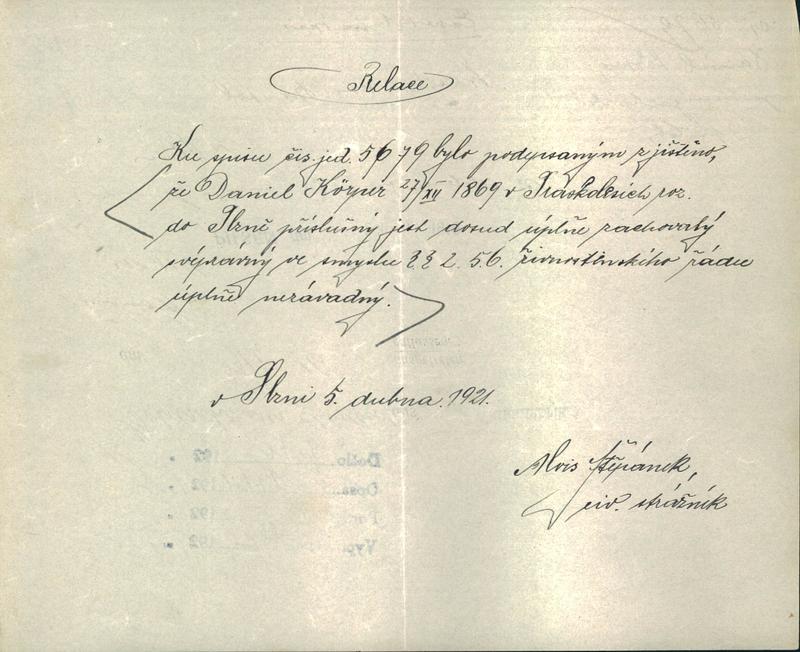 Relace
Ku spisu čís. jed. 5679 bylo podepsaným zjištěno,
že Daniel Körper 27/XII 1869 v roz.
do Plzně příslušný jest dosud úplně zachovalý
svéprávný ve smyslu §§ 2. 5. 6. živnostenského řádu
úplně nezávadný.
v Plzni 5. dubna. 1921.
Alois Štěpánek,
civ. strážník
Došlo 192
192
192
192